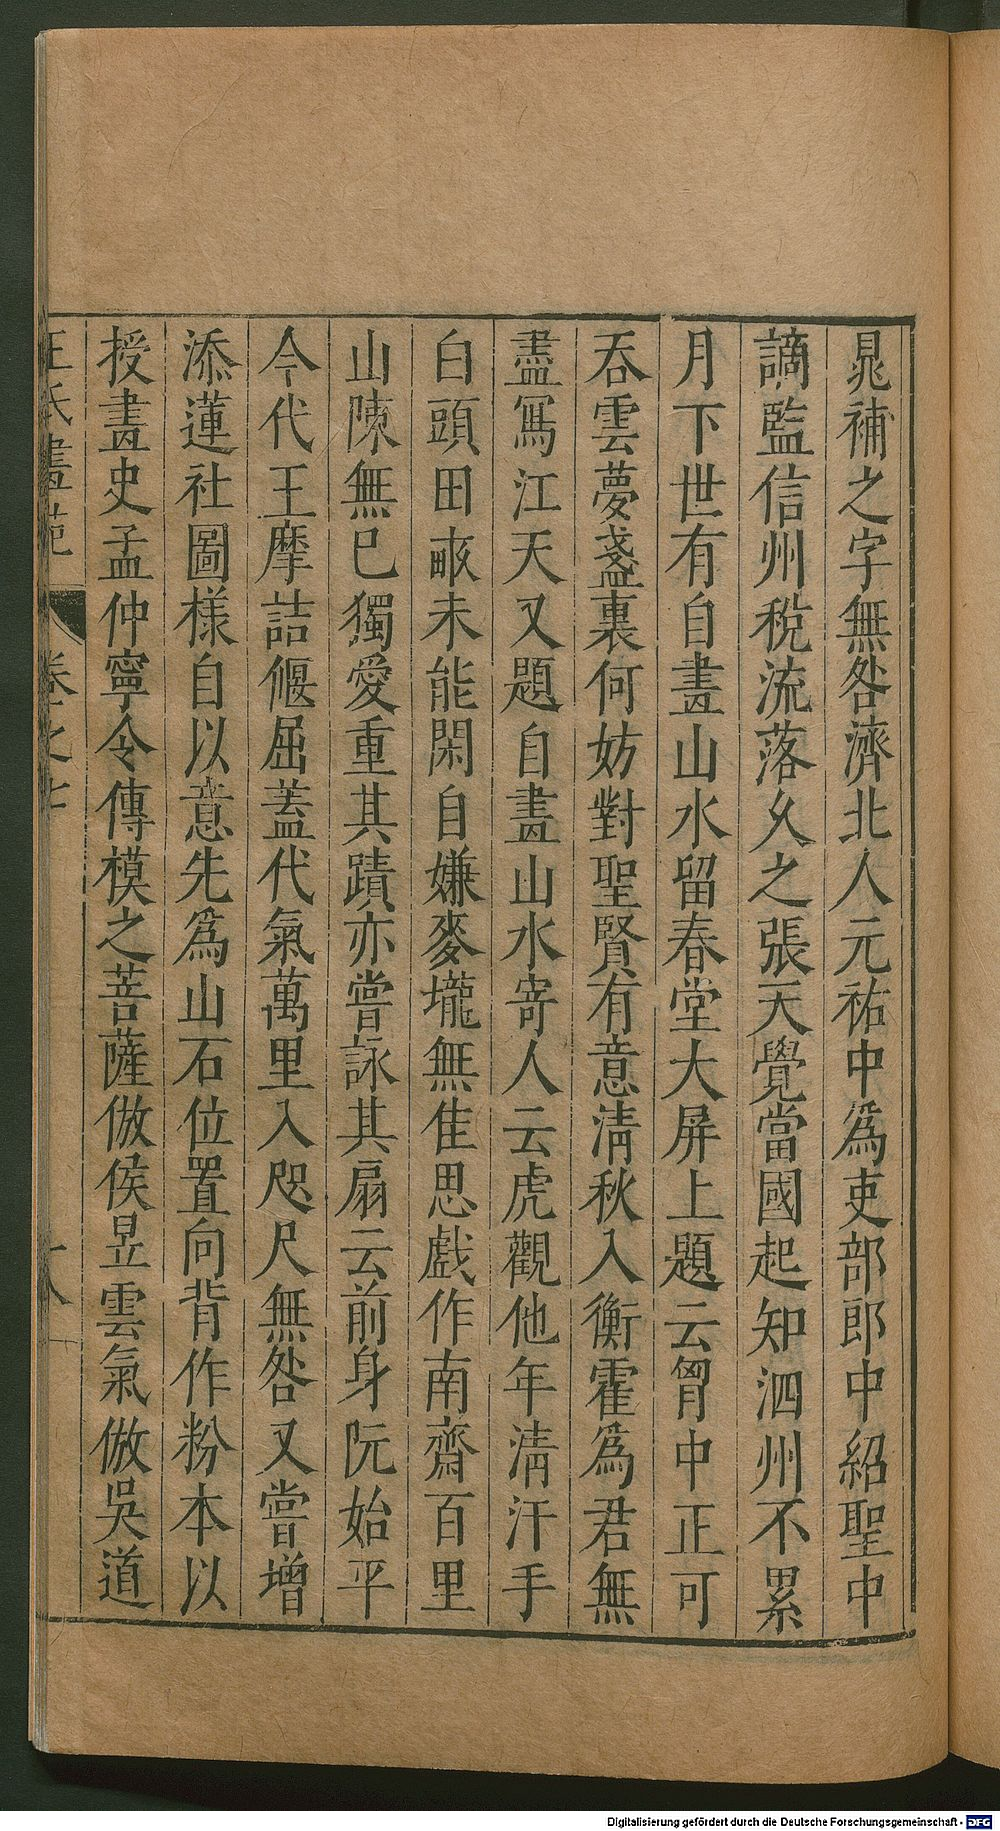 晁補之字無咎濟北人元祐中爲吏部郎中紹聖中
謫監信州稅流落久之張天覺當國起知泗州不累
月下世有自畫山水留春堂大屏上題云胷中正可
吞雲夢盞裏何妨對聖賢有意清秋入衡霍爲君無
盡寫江天又題自畫山水寄人云虎觀他年清汗手
白頭田畝未能閑自嫌麥壠無佳思戲作南齋百里
山陳無已獨愛重其蹟亦嘗詠其扇云前身阮始平
今代王摩詰偃屈蓋代氣萬里入咫尺無咎又嘗增
添蓮社圖樣自以意先爲山石位置向背作粉本以
授畫史孟仲寧令傳模之菩薩倣侯昱雲氣倣吳道
王氏畫苑 卷之七
Digitalisierung gefördert durch die Deutsche Forschungsgemeinschaft - DFG